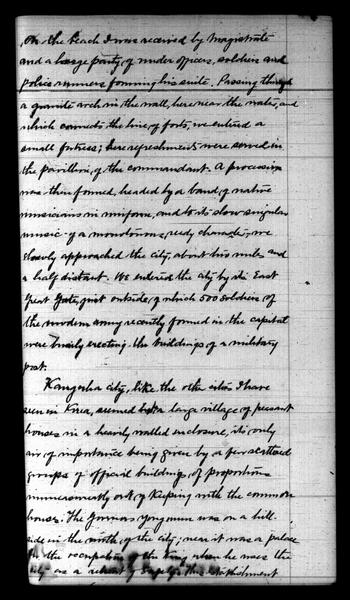 On the beach I was received by Magistrate
and a large party, of under officers, soldiers and
police runners forming his suite. Passing through
a granite arch in the wall, here near the water, and
which connects the line of forts, we entered a
small fortress; here refreshments were served in
the pavilion of the commandant. A procession
was then formed, headed by a band of native
musicians in uniform, and to its slow singular
music of a monotonous, reedy character, we
slowly approached the city, about two miles and
a half distant. We entered the city by its East
Great Gate, just outside of which 500 soldiers of
the modern army recently formed in the capital
were busily erecting the buildings of a military
post.
Kangwha city, like the other cities I have
seen in Korea, seemed but a large village of peasant
houses in a heavily walled enclosure, its only
air of importance being given by a few scattered
groups of official buildings, of proportions
out of keeping with the common
house. The Governor's yongmun was on a hill
side in the north of the city; near it was a palace
for the occupation of the King when he uses the
city as a retreat of safety. This establishment